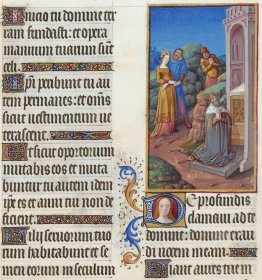 Inicio tu domine ter
ram fundasti: et opera
manuum tuarum sunt
celi.
Ipsi peribunt tu au
tem permanes: et oms
sicut uestimentum ue
terascent.
Et sicut opertorium
mutabis eos et muta
buntur tu autem idem
ipse es et anni tui non de
ficient.
Filij seruorum tuo
rum habitabunt et se
men eorum in seculum
De profundis
clamaui ad te
domine: domine exau
di uocem meam.
Fiant aures tue in